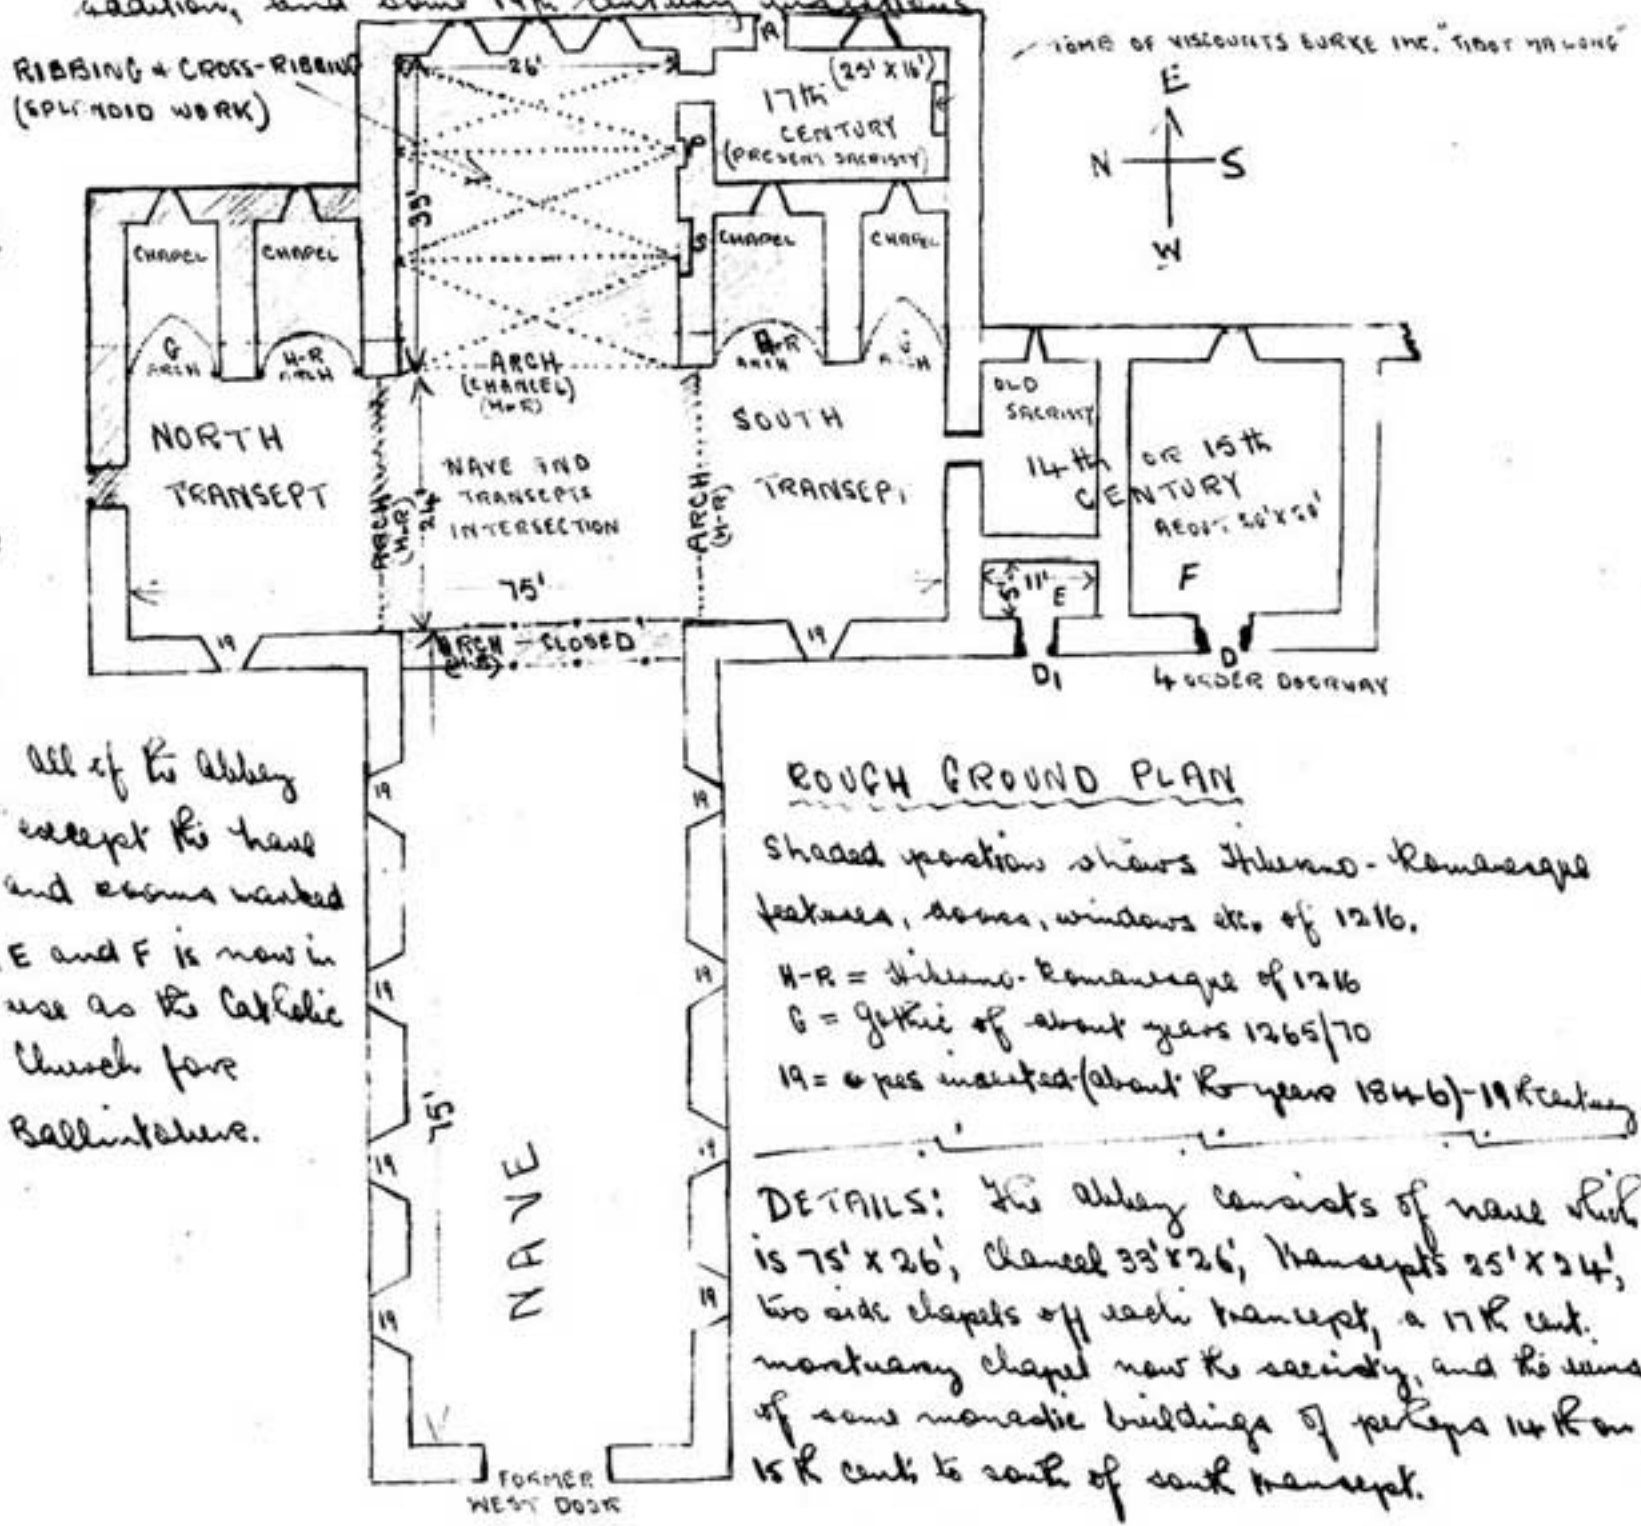 addition, and some 19th century insertions
RIBBING & CROSS-RIBBING
(SPLENDID WORK)
TOMB OF VISCOUNTS BURKE INC. "TIBOT NA LONG"
E
N S
W
26'
19
(25' X 16')
17th
CENTURY
(PRESENT SACRISTY)
P
35'
S
CHAPEL
CHAPEL
CHAPEL
CHAPEL
G
ARCH
H-R
ARCH
ARCH
(CHANCEL)
(H-R)
H-R
ARCH
G
ARCH
NORTH
TRANSEPT
ARCH
(H-R)
24'
NAVE AND
TRANSEPTS
INTERSECTION
ARCH
(H-R)
SOUTH
TRANSEPT
OLD
SACRISTY
14th OR 15th
CENTURY
ABOUT
75'
5'
11'
E
F
19
ARCH - CLOSED
(H-R)
19
D1
D
4 ORDER DOORWAY
All of the Abbey
except the nave
and rooms marked
E and F is now in
use as the Catholic
Church for
Ballintubber.
19
19
19
19
19
19
19
19
75'
NAVE
FORMER
WEST DOOR
ROUGH GROUND PLAN
Shaded portion shows Hiberno-Romanesque
features, doors, windows etc. of 1216.
H-R = Hiberno-Romanesque of 1216
G = Gothic of about years 1265/70
19 = opes inserted (about the year 1846) - 19th century
DETAILS: The Abbey consists of nave which
is 75' x 26', Chancel 33' x 26', Transepts 25' x 24',
two side chapels off each transept, a 17th cent.
mortuary chapel now the sacristy, and the ruins
of some monastic buildings of perhaps 14th or
15th cent. to south of south transept.